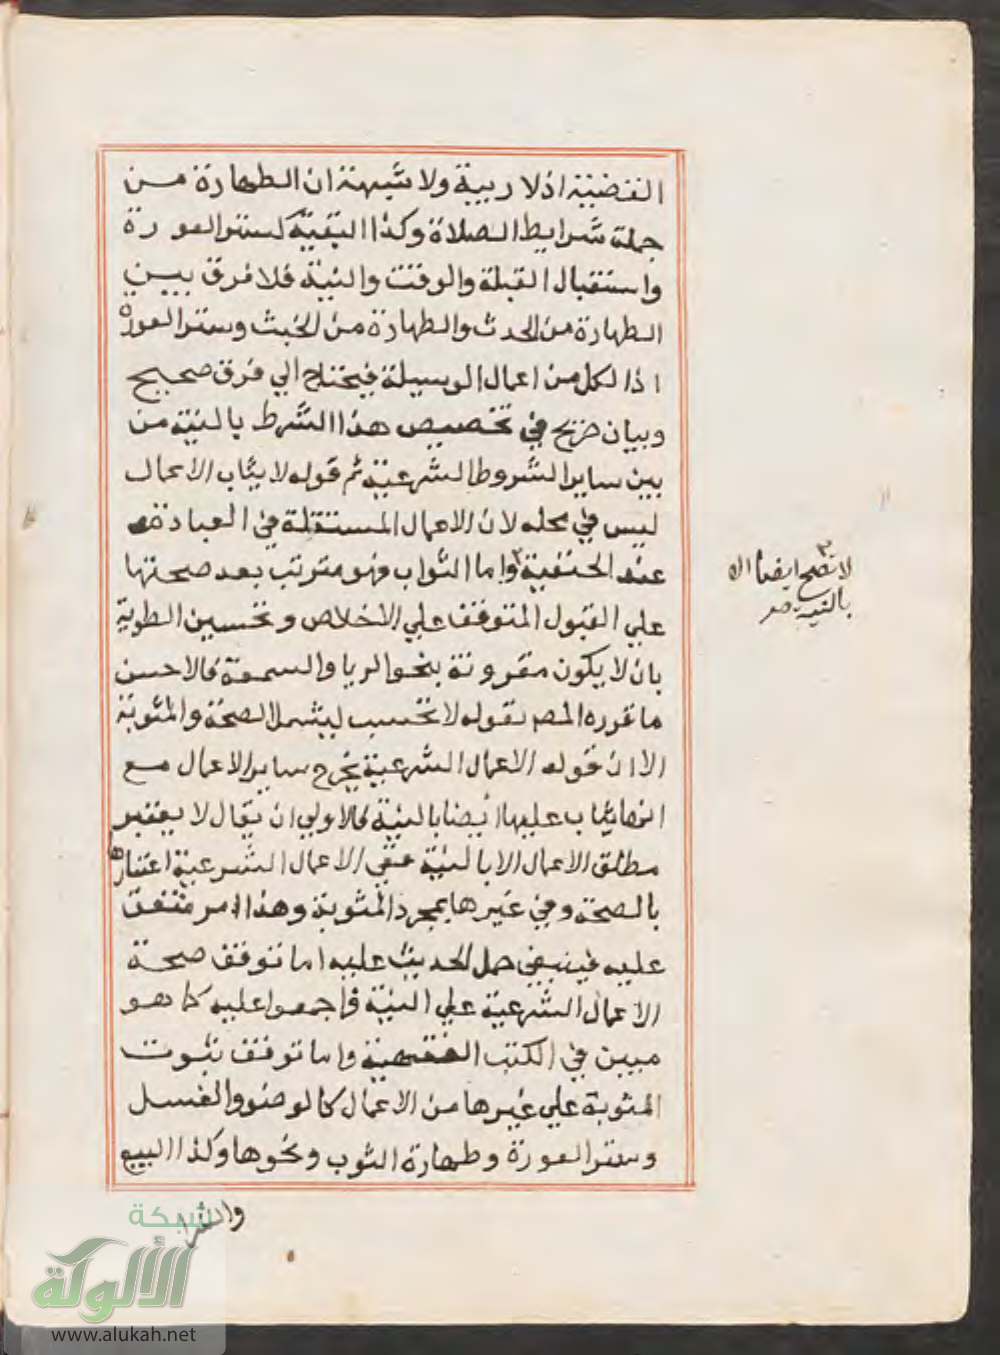 القضية اذ لا ريبة ولا شبهة ان الطهارة من
جملة شرايط الصلاة وكذا البقية كستر العورة
واستقبال القبلة والوقت والنية فلا فرق بين
الطهارة من الحدث والطهارة من الخبث وستر العورة
اذ الكل من اعمال الوسيلة فيحتاج الي فرق صحيح
وبيان صريح في تخصيص هذا الشرط بالنية من
بين ساير الشروط الشرعية ثم قوله لا يثاب الاعمال
ليس في محله لان الاعمال المستقلة في العبادة
عند الحنفية ٣ واما الثواب فهو مترتب بعد صحتها
علي القبول المتوقف علي الاخلاص وتحسين الطوية
بان لا يكون مقرونة بنحو الريا والسمعة فالاحسن
ما قرره المص بقوله لا تحسب ليشمل الصحة والمثوبة
الا ان قوله الاعمال الشرعية يخرج ساير الاعمال مع
انها يثاب عليها ايضا بالنية فالاولي ان يقال لا يعتبر
مطلق الاعمال الا بالنية ففي الاعمال الشرعية اعتبارها
بالصحة وفي غيرها بمجرد المثوبة وهذا امر متفق
عليه فينبغي حمل الحديث عليه اما توقف صحة
الاعمال الشرعية علي النية فاجمعوا عليه كما هو
مبين في الكتب الفقهية واما توقف ثبوت
المثوبة علي غيرها من الاعمال كالوضوء والغسل
وستر العورة وطهارة الثوب ونحوها وكذا البيع
والشرا
٣
لا تصح ايضا الا
بالنية صح
شبكة
الألوكة
www.alukah.net